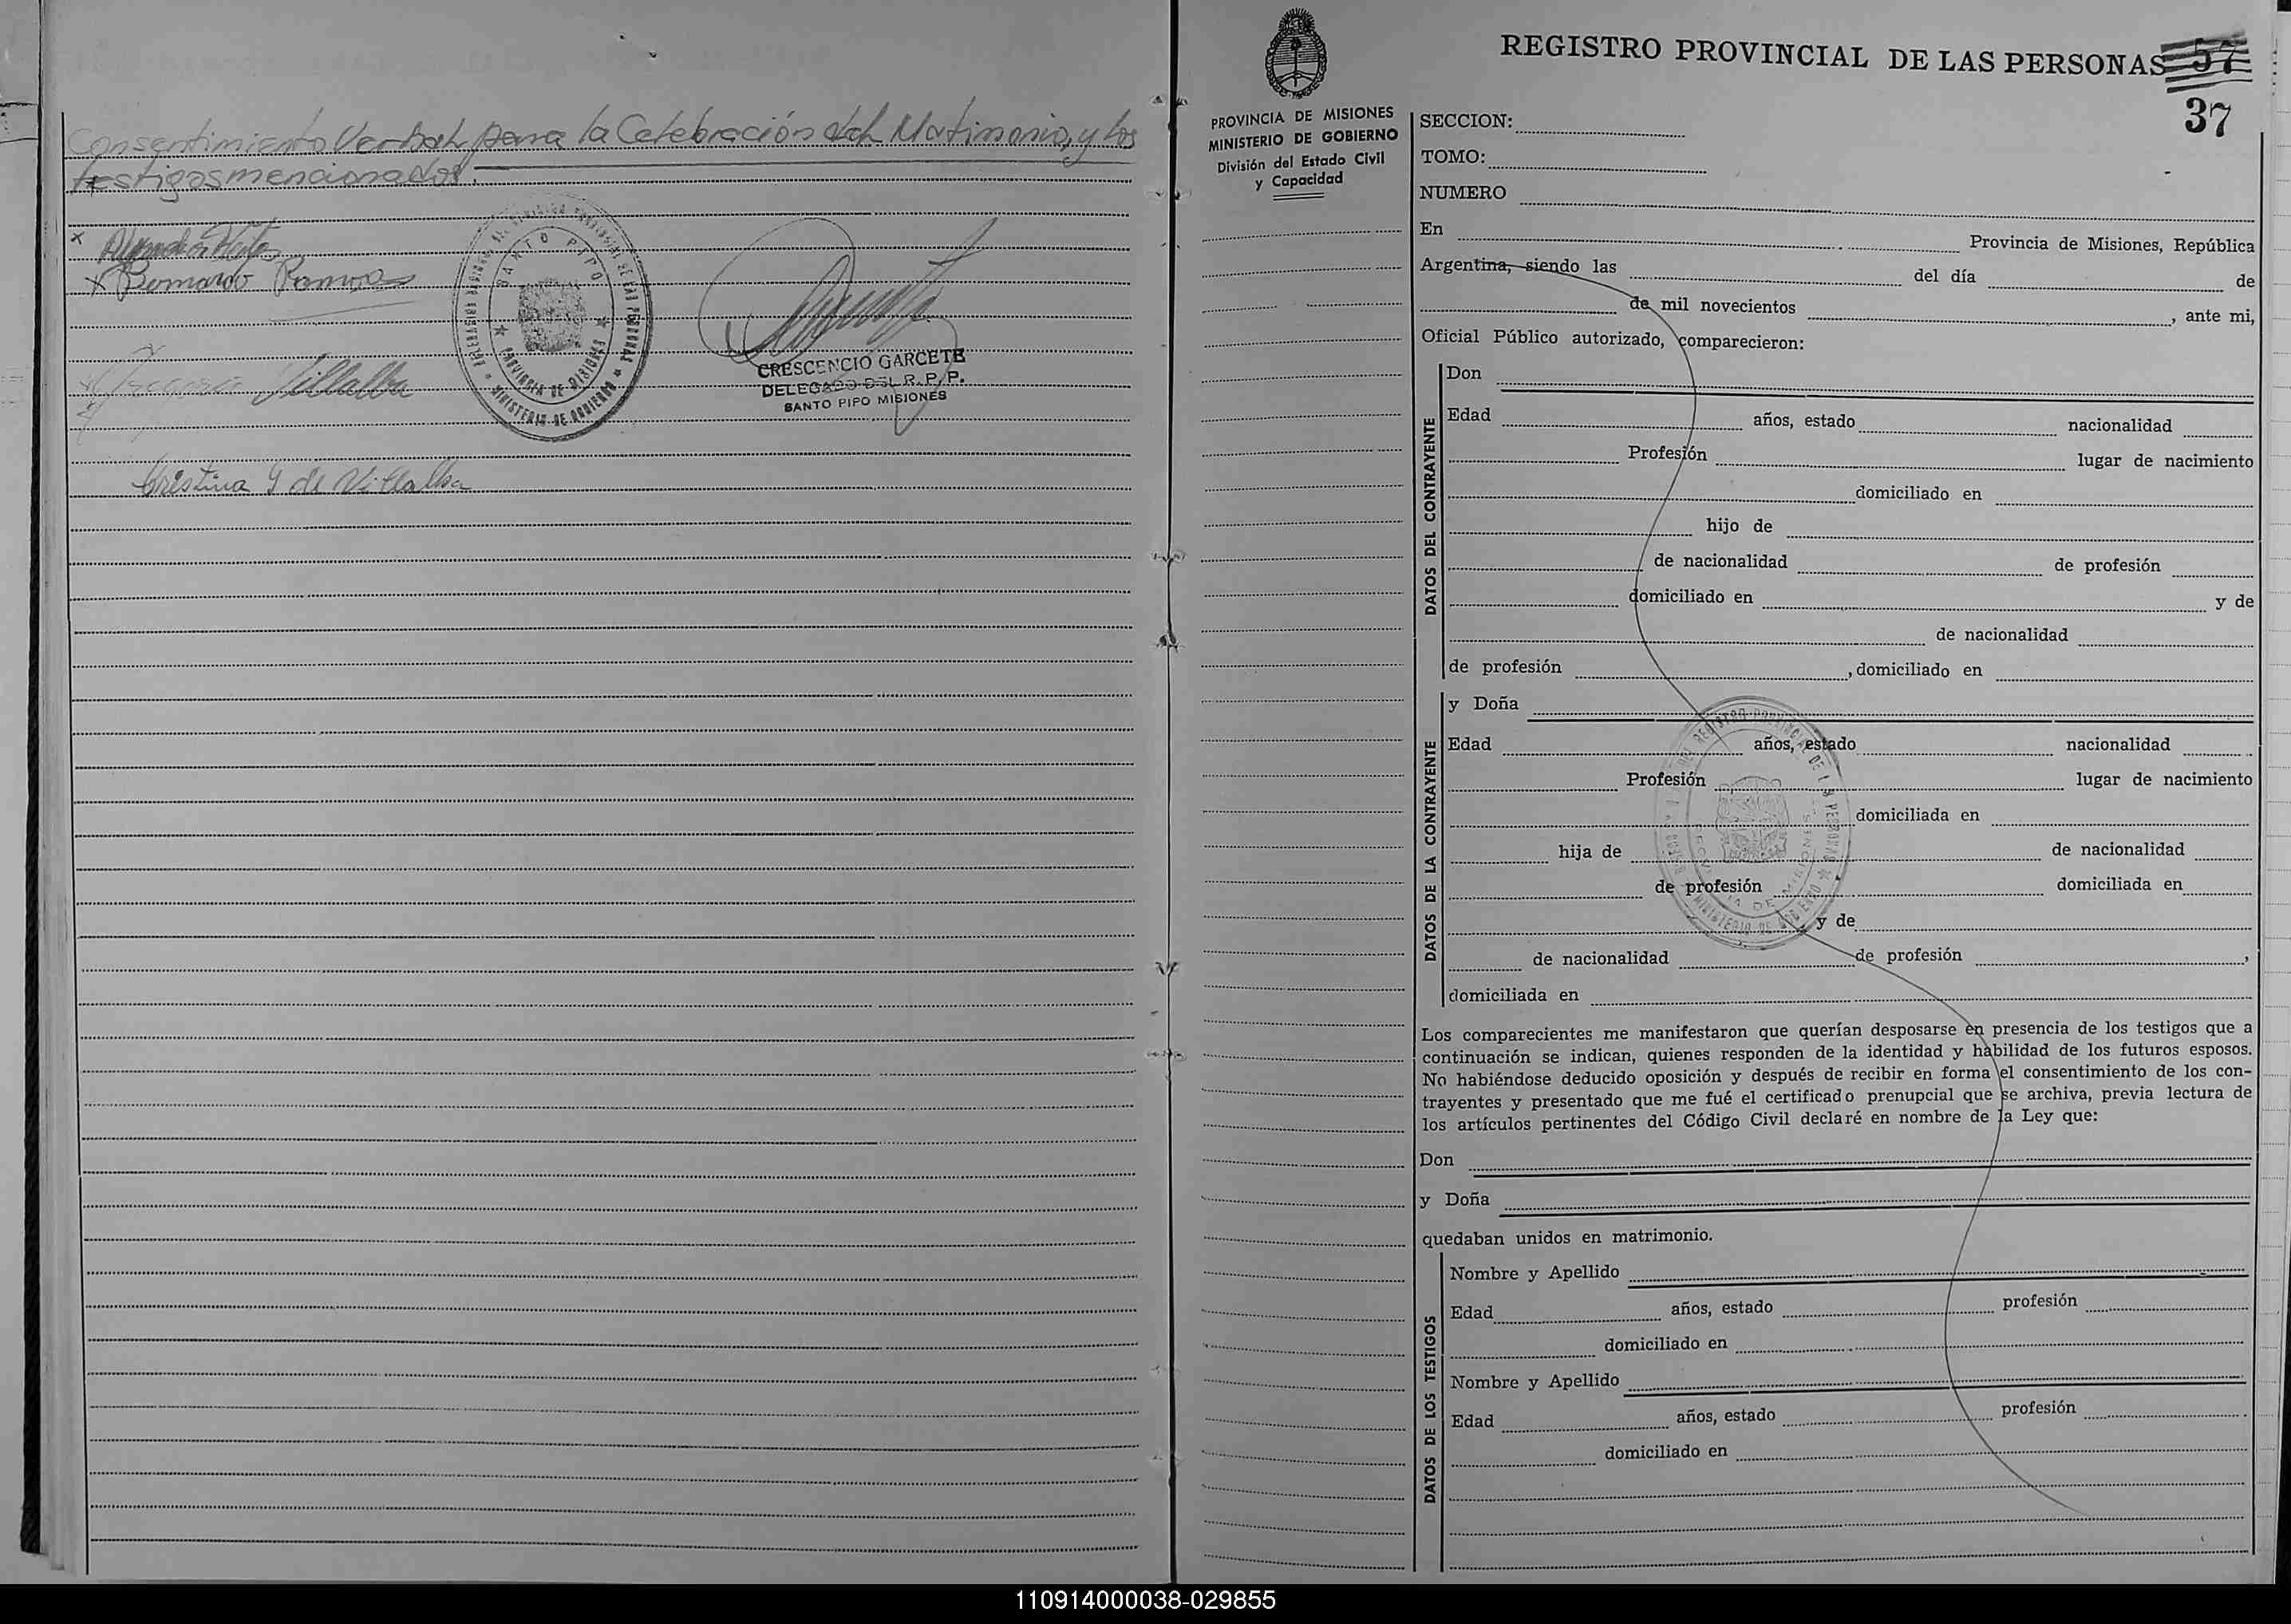 Consentimiento Verbal, para la Celebración del Matimonio, y los
testigos mencionados.
x
x Bernardo Ramos
Villalba
Cristina G de Villalba
SANTO PIPO
PROVINCIA DE MISIONES
MINISTERIO DE GOBIERNO
CRESCENCIO GARCETE
DELEGADO DEL R. P. P.
SANTO PIPO MISIONES
REGISTRO PROVINCIAL DE LAS PERSONAS 57
37
PROVINCIA DE MISIONES
MINISTERIO DE GOBIERNO
División del Estado Civil
y Capacidad
SECCION:
TOMO:
NUMERO
En Provincia de Misiones, República
Argentina, siendo las del día de
de mil novecientos , ante mi,
Oficial Público autorizado, comparecieron:
DATOS DEL CONTRAYENTE
Don
Edad años, estado nacionalidad
Profesión lugar de nacimiento
domiciliado en
hijo de
de nacionalidad de profesión
domiciliado en y de
de nacionalidad
de profesión , domiciliado en
DATOS DE LA CONTRAYENTE
y Doña
Edad años, estado nacionalidad
Profesión lugar de nacimiento
domiciliada en
hija de de nacionalidad
de profesión domiciliada en
y de
de nacionalidad de profesión ,
domiciliada en
REGISTRO PROVINCIAL DE LAS PERSONAS
MINISTERIO DE GOBIERNO
Los comparecientes me manifestaron que querían desposarse en presencia de los testigos que a
continuación se indican, quienes responden de la identidad y habilidad de los futuros esposos.
No habiéndose deducido oposición y después de recibir en forma el consentimiento de los con-
trayentes y presentado que me fué el certificado prenupcial que se archiva, previa lectura de
los artículos pertinentes del Código Civil declaré en nombre de la Ley que:
Don
y Doña
quedaban unidos en matrimonio.
DATOS DE LOS TESTIGOS
Nombre y Apellido
Edad años, estado profesión
domiciliado en
Nombre y Apellido
Edad años, estado profesión
domiciliado en
110914000038-029855